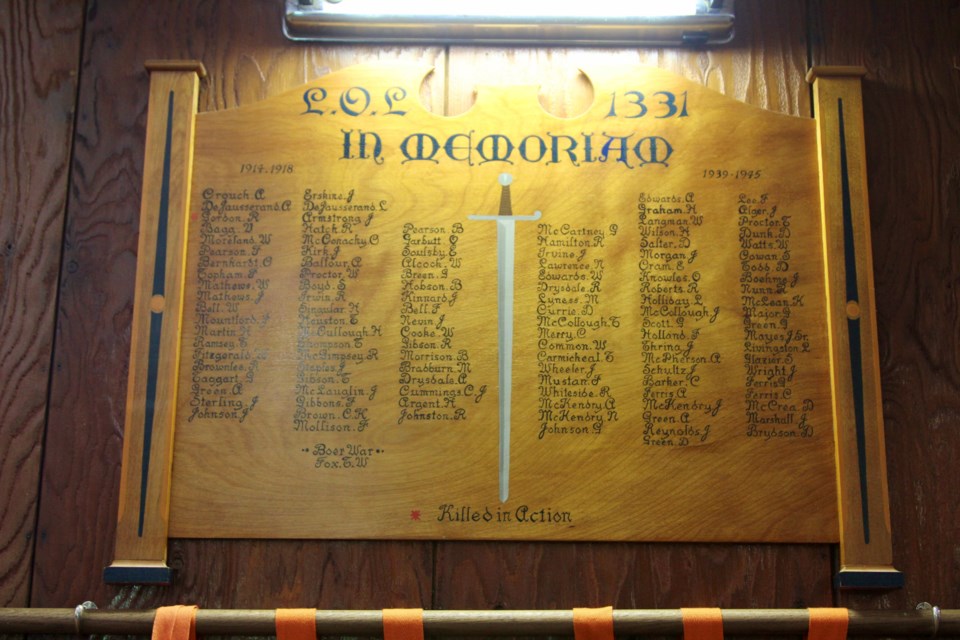 L.O.L 1331
IN MEMORIAM
1914.1918
1939-1945
Crouch.A
DeJausserand.A
Gordon.R
Saga.W
Moreland.W
Pearson.F
Bernhardt.C
Topham.F
Mathews.W
Mathews.J
Bell.W
Mountford.J
Martin.H
Ramsey.E
Fitzgerald.W
Brownlee.R
Taggart.G
Green.A
Sterling.J
Johnson.J
Erskine.J
DeJausserand.L
Armstrong.J
Hatch.R
McConachy.C
Kirk.J
Balfour.G
Proctor.W
Boyd.S
Irwin.R
Singular.H
Houston.E
McCullough.H
Thompson.E
McGimpsey.R
Staples.J
Gibson.T
McLauglin.J
Gibbons.F
Brown.C.H
Mollison.F
Boer War
Fox.T.W
Pearson.B
Garbutt.O
Soulsby.E
Alcock.W
Breen.G
Hobson.B
Kinnard.J
Bell.F
Nevin.J
Cooke.W
Gibson.R
Morrison.B
Bradburn.M
Drysdale.A
Cummings.C.J
Argent.H
Johnston.R
McCartney.G
Hamilton.R
Irvine.J
Lawrence.R
Edwards.W
Drysdale.R
Lyness.M
Currie.D
McCollough.T
Merry.C
Common.W
Carmicheal.T
Wheeler.J
Mustan.F
Whiteside.R
McKendry.A
McKendry.N
Johnson.G
Edwards.A
Graham.H
Langman.W
Wilson.H
Salter.D
Morgan.J
Oram.E
Knowles.O
Roberts.R
Holliday.L
McCollough.J
Scott.G
Holland.F
Ehring.J
McPherson.A
Schultz.J
Barker.C
Ferris.A
McKendry.J
Green.A
Reynolds.J
Green.D
Lee.F
Alger.J
Proctor.T
Dunk.D
Watts.W
Cowan.E
Todd.D
Boehme.J
Nunn.R
McLean.H
Major.G
Green.G
Mayes.J.Sr.
Livingston.L
Glazier.S
Wright.J
Ferris.G
Ferris.C
McCrea.D
Marshall.J
Brydson.D
* Killed in Action